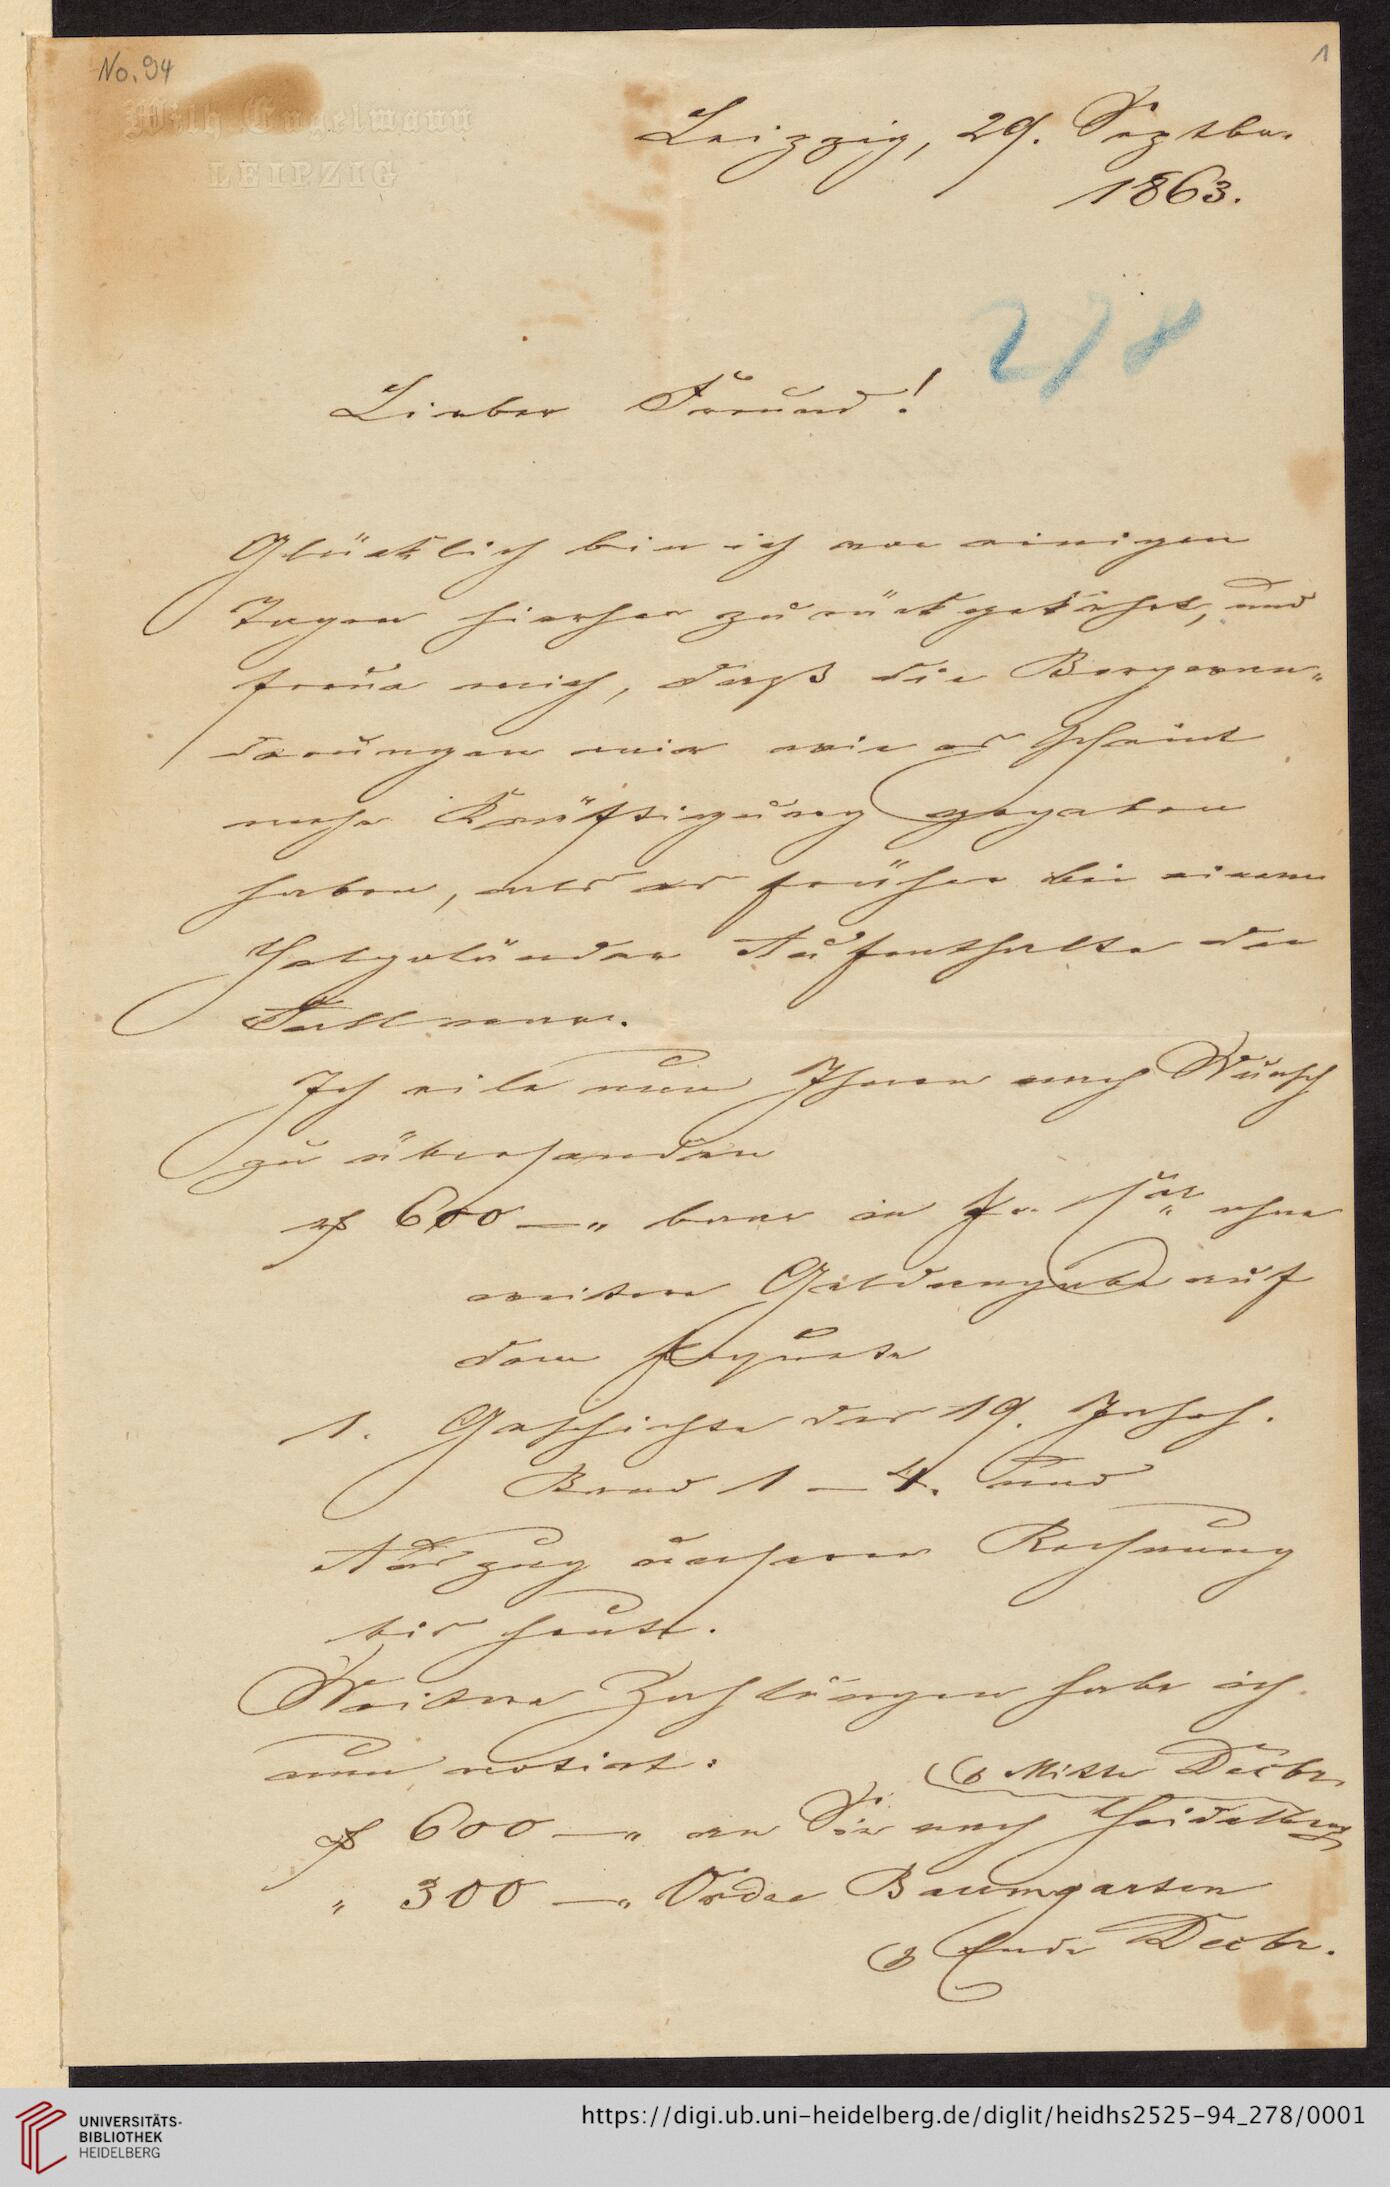 No. 94
1
Wilh Engelmann
LEIPZIG
Leipzig, 29. Septbr.
1863.
278
Lieber Freund!
Glücklich bin ich vor einigen
Tagen hierher zurückgekehrt, und
freue mich, daß die Bergwan-
derungen mir wie es scheint
mehr Kräftigung gegeben
haben, als es früher bei einem
Helgoländer Aufenthalte der
Fall war.
Ich eile nun Ihnen nach Wunsch
zu übersenden
600 — " baar in ohne
weitere Geldangabe auf
dem Paquete
1. Geschichte des 19. Jahrh.
Band 1 — 4. und
Auszug unserer Rechnung
bis heute.
Weitere Zahlungen habe ich
nun notirt:
Mitte Decbr.
600 — " an Sie nach Heidelberg
" 300 — " Ordre Baumgarten
Ende Decbr.
UNIVERSITÄTS-
BIBLIOTHEK
HEIDELBERG
https://digi.ub.uni-heidelberg.de/diglit/heidhs2525-94_278/0001